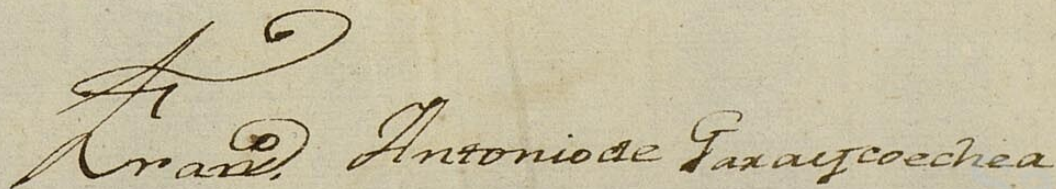 Fran.co Antonio de Garaycoechea